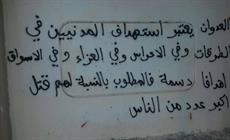 العدوان يعتبر استهداف المدنيين في
الطرقات وفي الاعراس وفي العزاء وفي الاسواق
اهدافا دسمة فالمطلوب بالنسبة لهم قتل
اكبر عدد من الناس